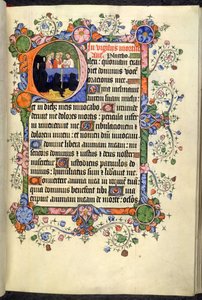 In vigiliis mortuor
Placebo
lexi: quoniam exau
diet dominus vocē
orationis mee.
Quia inclinavit
aurem suam michi:
et in diebz meis invocabo. Circum
dederunt me dolores mortis: et pericula
inferni invenerunt me. Tribulationem et
dolorem inveni: et nomen domini invocavi.
O domine libera animam meam: mise
ricors dominus et iustus et deus noster
miseretur. Custodiens parvulos do
minus: humiliatus sum et liberavit me.
Convertere anima mea in requiē tuā:
quia dominus benefecit tibi. Quia
eripuit animam meam de morte: oclos